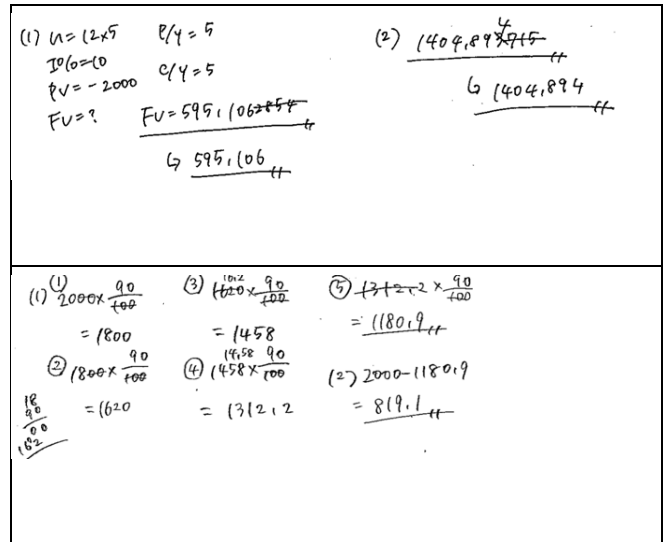 (1) n = 12×5 P/Y = 5
I% = -10 C/Y = 5
PV = -2000
FV = ? FV = 595.1062854
↳ 595.106
(2) 1404.8937154
↳ 1404.894
(1) ① 2000 × 90/100
= 1800
② 1800 × 90/100
= 1620
18
90
00
162
③ 1620 × 90/100
= 1458
④ 14.58 1458 × 90/100
= 1312.2
⑤ 1312.2 × 90/100
= 1180.9
(2) 2000-1180.9
= 819.1